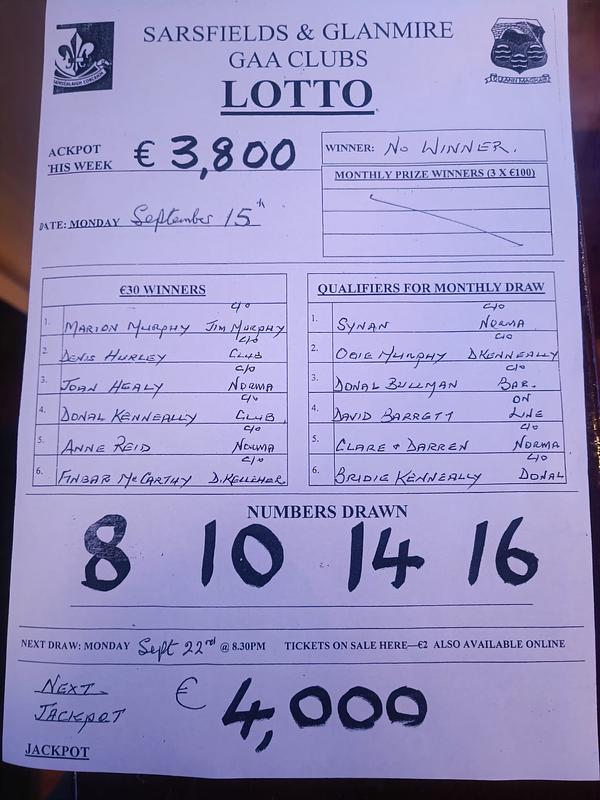 SARSFIELDS & GLANMIRE
GAA CLUBS
LOTTO
ACKPOT
HIS WEEK € 3,800
WINNER: NO WINNER.
MONTHLY PRIZE WINNERS (3 X €100)
DATE: MONDAY September 15th
€30 WINNERS
1. MARION MURPHY c/o JIM MURPHY
2. DENIS HURLEY c/o CLUB
3. JOAN HEALY c/o NORMA
4. DONAL KENNEALLY c/o CLUB
5. ANNE REID c/o NORMA
6. FINBAR McCARTHY c/o D.KELLEHER
QUALIFIERS FOR MONTHLY DRAW
1. SYNAN c/o NORMA
2. OGIE MURPHY c/o D KENNEALLY
3. DONAL BULLMAN c/o BAR.
4. DAVID BARRETT ON LINE
5. CLARE + DARREN c/o NORMA
6. BRIDIE KENNEALLY c/o DONAL
NUMBERS DRAWN
8 10 14 16
NEXT DRAW: MONDAY Sept 22nd @ 8.30PM TICKETS ON SALE HERE—€2 ALSO AVAILABLE ONLINE
NEXT JACKPOT € 4,000
JACKPOT